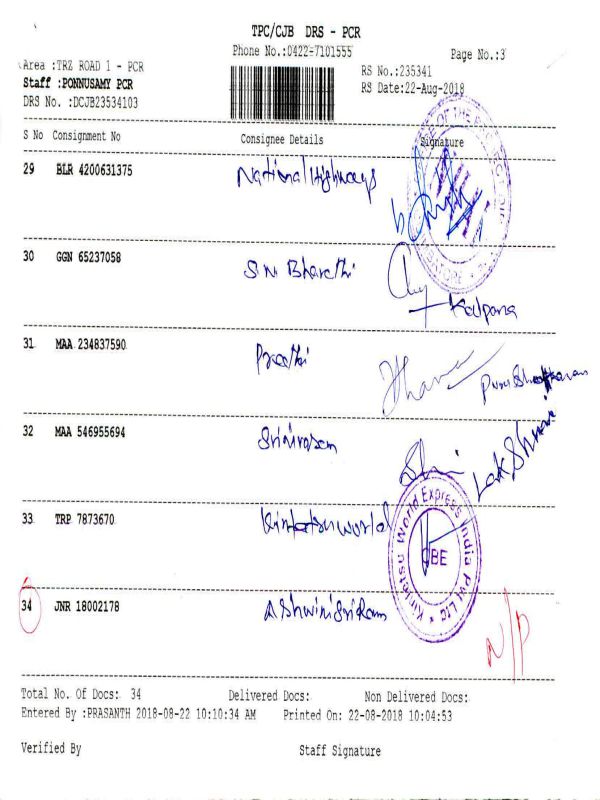 TPC/CJB DRS - PCR
Phone No.:0422-7101555
Page No.:3
Area :TRZ ROAD 1 - PCR
RS No.:235341
Staff :PONNUSAMY PCR
RS Date:22-Aug-2018
DRS No. :DCJB23534103
S No Consignment No Consignee Details Signature
29 BLR 4200631375 National Highways
30 GGN 65237058 Sri Bharathi
Kalpana
31 MAA 234837590 Preethi
32 MAA 546955694 Srinivasan
Lakshmi
33 TRP 7873670 Kintetsu world
Kintetsu World Express India Pvt Ltd
CBE
34 JNR 18002178 Ashwini Sriram
N/P
Total No. Of Docs: 34 Delivered Docs: Non Delivered Docs:
Entered By :PRASANTH 2018-08-22 10:10:34 AM Printed On: 22-08-2018 10:04:53
Verified By Staff Signature